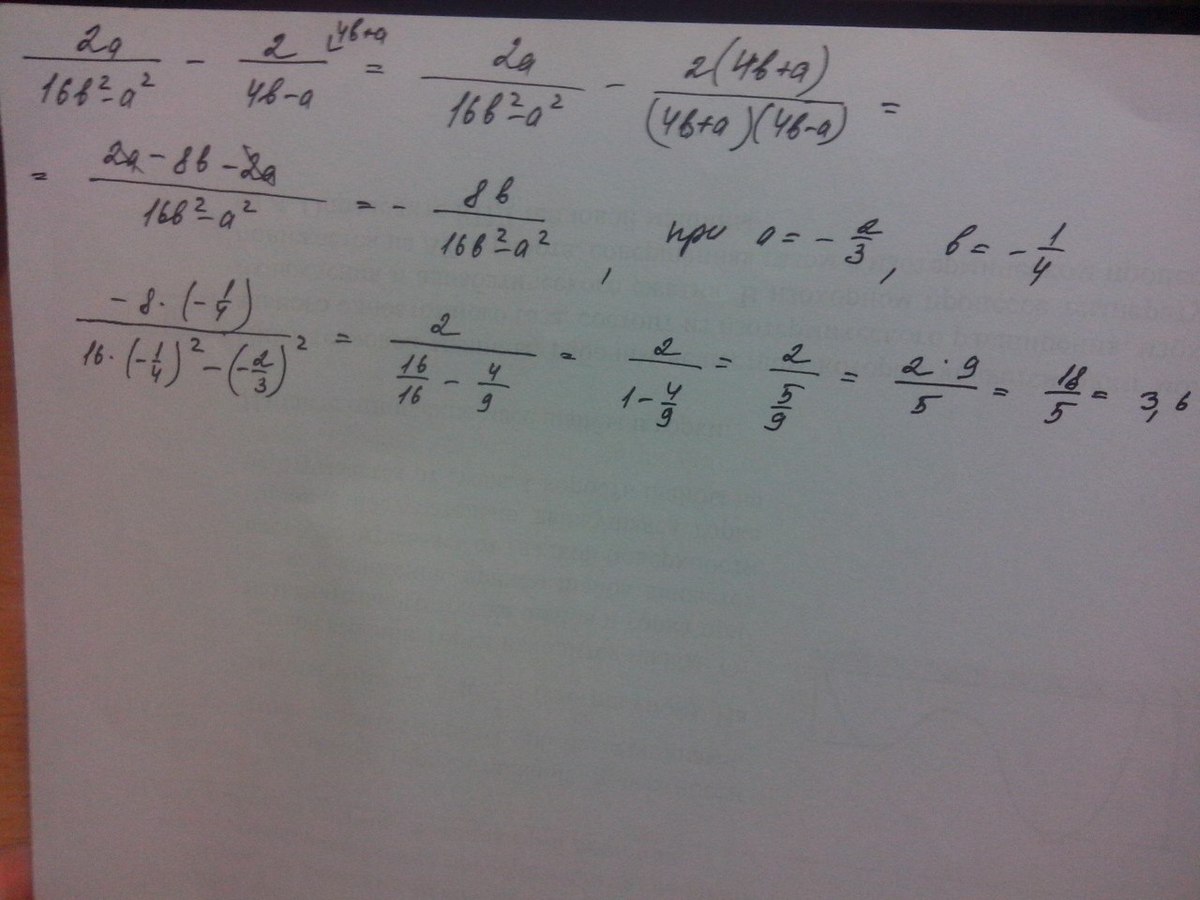 2a/(16в²-a²) - 2/(4в-a) ⌊4в+a = 2a/(16в²-a²) - 2(4в+a)/((4в+a)(4в-a)) =
= (2a - 8в - 2a)/(16в²-a²) = - 8в/(16в²-a²), при a = - 2/3, в = - 1/4
(-8·(-1/4))/(16·(-1/4)² - (-2/3)²) = 2/(16/16 - 4/9) = 2/(1 - 4/9) = 2/(5/9) = (2·9)/5 = 18/5 = 3,6